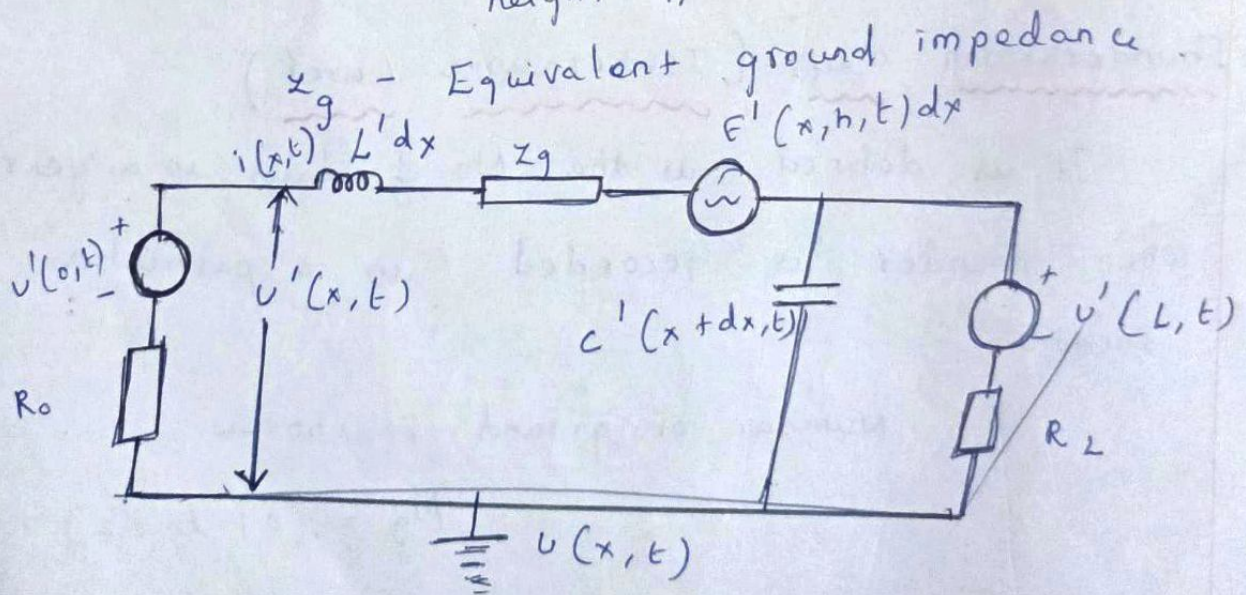 z_g - Equivalent ground impedance
E'(x,h,t)dx
i(x,t) L'dx
Zg
u'(0,t)
+
-
u'(x,t)
c'(x+dx,t)
+
-
u'(L,t)
R0
RL
u(x,t)